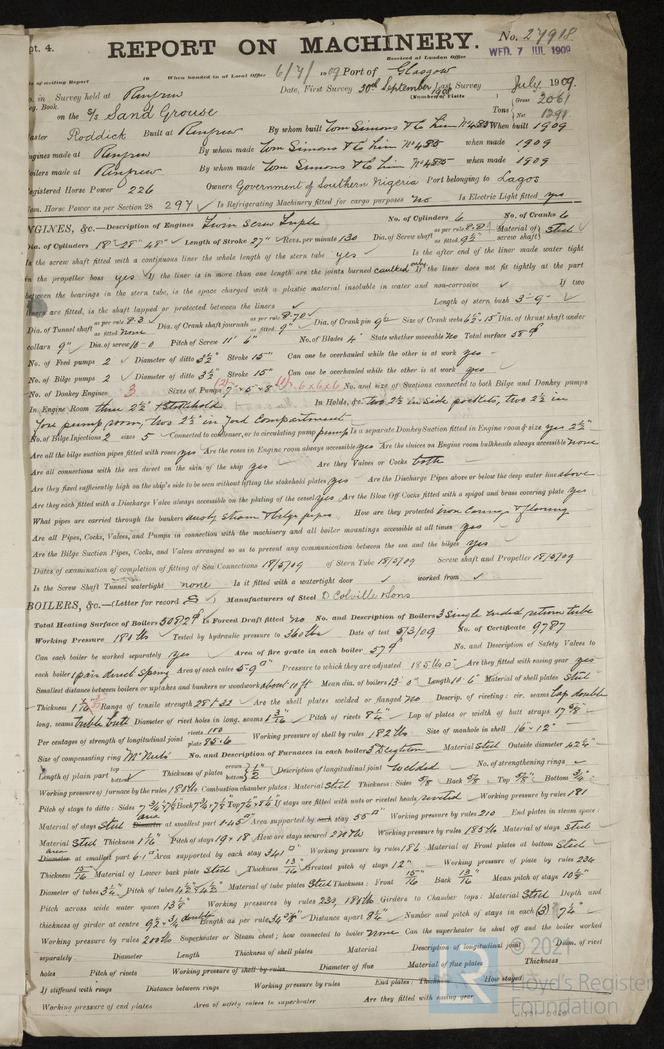 pt. 4.
REPORT ON MACHINERY.
No. 27918
Received at London Office
WED. 7 JUL 1909
of writing Report 19 When handed in at Local Office 6/7/1909 Port of Glasgow
in Survey held at Renfrew Date, First Survey 20th September 1908 Last Survey July 1909.
Book. (Number of Visits
on the S/S Sand Grouse Tons { Gross 2061
Net 1291
aster Roddick Built at Renfrew By whom built Wm Simons & Co Lim No 485 When built 1909
ngines made at Renfrew By whom made Wm Simons & Co Lim No 485 when made 1909
oilers made at Renfrew By whom made Wm Simons & Co Lim No 485 when made 1909
egistered Horse Power 226 Owners Government of Southern Nigeria Port belonging to Lagos
om. Horse Power as per Section 28 297 Is Refrigerating Machinery fitted for cargo purposes no Is Electric Light fitted yes
NGINES, &c.—Description of Engines Twin Screw Triple No. of Cylinders 6 No. of Cranks 6
Dia. of Cylinders 18" 28" 48" Length of Stroke 27" Revs. per minute 130 Dia. of Screw shaft as per rule as fitted 9½" Material of screw shaft Steel
Is the screw shaft fitted with a continuous liner the whole length of the stern tube yes Is the after end of the liner made water tight
in the propeller boss yes If the liner is in more than one length are the joints burned caulked only If the liner does not fit tightly at the part
between the bearings in the stern tube, is the space charged with a plastic material insoluble in water and non-corrosive If two
liners are fitted, is the shaft lapped or protected between the liners Length of stern bush 3'-9"
Dia. of Tunnel shaft as per rule 8.3 as fitted none Dia. of Crank shaft journals as per rule 8.70 as fitted 9" Dia. of Crank pin 9" Size of Crank webs Dia. of thrust shaft under
collars 9" Dia. of screw 10-0 Pitch of Screw 11' 6" No. of Blades 4 State whether moveable no Total surface
No. of Feed pumps 2 Diameter of ditto 3½" Stroke 15" Can one be overhauled while the other is at work yes
No. of Bilge pumps 2 Diameter of ditto 3½" Stroke 15" Can one be overhauled while the other is at work yes
No. of Donkey Engines 3 Sizes of Pumps No. and size of Suctions connected to both Bilge and Donkey pumps
In Engine Room three 2½" In Holds, &c. two 2½ in side pockets, two 2½ in
pump room, two 2½" in compartment
No. of Bilge Injections 2 sizes 5 Connected to condenser, or to circulating pump pump Is a separate Donkey Suction fitted in Engine room & size yes 2½"
Are all the bilge suction pipes fitted with roses yes Are the roses in Engine room always accessible yes Are the sluices on Engine room bulkheads always accessible none
Are all connections with the sea direct on the skin of the ship yes Are they Valves or Cocks both
Are they fixed sufficiently high on the ship's side to be seen without lifting the stokehold plates yes Are the Discharge Pipes above or below the deep water line above
Are they each fitted with a Discharge Valve always accessible on the plating of the vessel yes Are the Blow Off Cocks fitted with a spigot and brass covering plate yes
What pipes are carried through the bunkers How are they protected
Are all Pipes, Cocks, Valves, and Pumps in connection with the machinery and all boiler mountings accessible at all times yes
Are the Bilge Suction Pipes, Cocks, and Valves arranged so as to prevent any communication between the sea and the bilges yes
Dates of examination of completion of fitting of Sea Connections 18/5/09 of Stern Tube 18/5/09 Screw shaft and Propeller 18/5/09
Is the Screw Shaft Tunnel watertight none Is it fitted with a watertight door worked from
BOILERS, &c.—(Letter for record S) Manufacturers of Steel D Colville & Sons
Total Heating Surface of Boilers Is Forced Draft fitted no No. and Description of Boilers 3 Single ended return tube
Working Pressure 180 lbs Tested by hydraulic pressure to 360 lbs Date of test 5/3/09 No. of Certificate 9787
Can each boiler be worked separately yes Area of fire grate in each boiler No. and Description of Safety Valves to
each boiler 1 pair direct Spring Area of each valve Pressure to which they are adjusted 185 lb Are they fitted with easing gear yes
Smallest distance between boilers or uptakes and bunkers or woodwork about 10 ft Mean dia. of boilers 13'.0" Length 10'.6" Material of shell plates Steel
Thickness Range of tensile strength 28 & 32 Are the shell plates welded or flanged no Descrip. of riveting: cir. seams lap double
long. seams treble butt Diameter of rivet holes in long. seams Pitch of rivets Lap of plates or width of butt straps
Per centages of strength of longitudinal joint rivets 100 plate 85.6 Working pressure of shell by rules 182 lbs Size of manhole in shell 16" × 12"
Size of compensating ring McNeils No. and Description of Furnaces in each boiler 3 Deighton Material Steel Outside diameter
Length of plain part top bottom Thickness of plates crown bottom Description of longitudinal joint welded No. of strengthening rings
Working pressure of furnace by the rules Combustion chamber plates: Material Steel Thickness: Sides ⅝ Back ⅝ Top ⅝" Bottom ¾"
Pitch of stays to ditto: Sides Back Top If stays are fitted with nuts or riveted heads riveted Working pressure by rules 181
Material of stays Steel Diameter area at smallest part Area supported by each stay 55 Working pressure by rules 210 End plates in steam space:
Material Steel Thickness Pitch of stays 19 × 18 How are stays secured Working pressure by rules 185 lb Material of stays steel
Diameter area at smallest part Area supported by each stay 341 Working pressure by rules 186 Material of Front plates at bottom Steel
Thickness 15/16 Material of Lower back plate Steel Thickness 13/16 Greatest pitch of stays 12" Working pressure of plate by rules 234
Diameter of tubes 3¼" Pitch of tubes Material of tube plates Steel Thickness: Front 15/16 Back 13/16 Mean pitch of stays
Pitch across wide water spaces 13½" Working pressures by rules Girders to Chamber tops: Material Steel Depth and
thickness of girder at centre Length as per rule Distance apart Number and pitch of stays in each (3)
Working pressure by rules Superheater or Steam chest; how connected to boiler none Can the superheater be shut off and the boiler worked
separately Diameter Length Thickness of shell plates Material Description of longitudinal joint Diam. of rivet
holes Pitch of rivets Working pressure of shell by rules Diameter of flue Material of flue plates Thickness
If stiffened with rings Distance between rings Working pressure by rules End plates: Thickness How stayed
Working pressure of end plates Area of safety valves to superheater Are they fitted with easing gear
© 2021
Lloyd's Register
Foundation